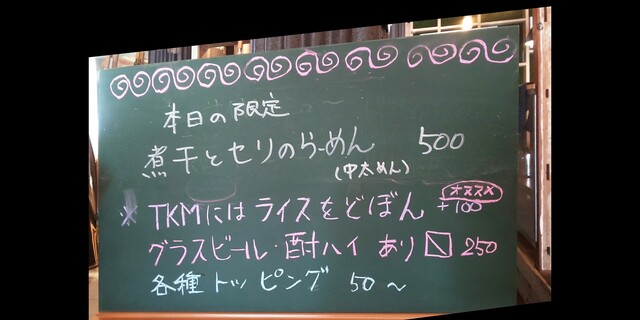 本日の限定
煮干とセリのらーめん 500
(中太めん)
オススメ
※ TKMにはライスをどぼん +100
グラスビール・酎ハイ あり 250
各種トッピング 50〜